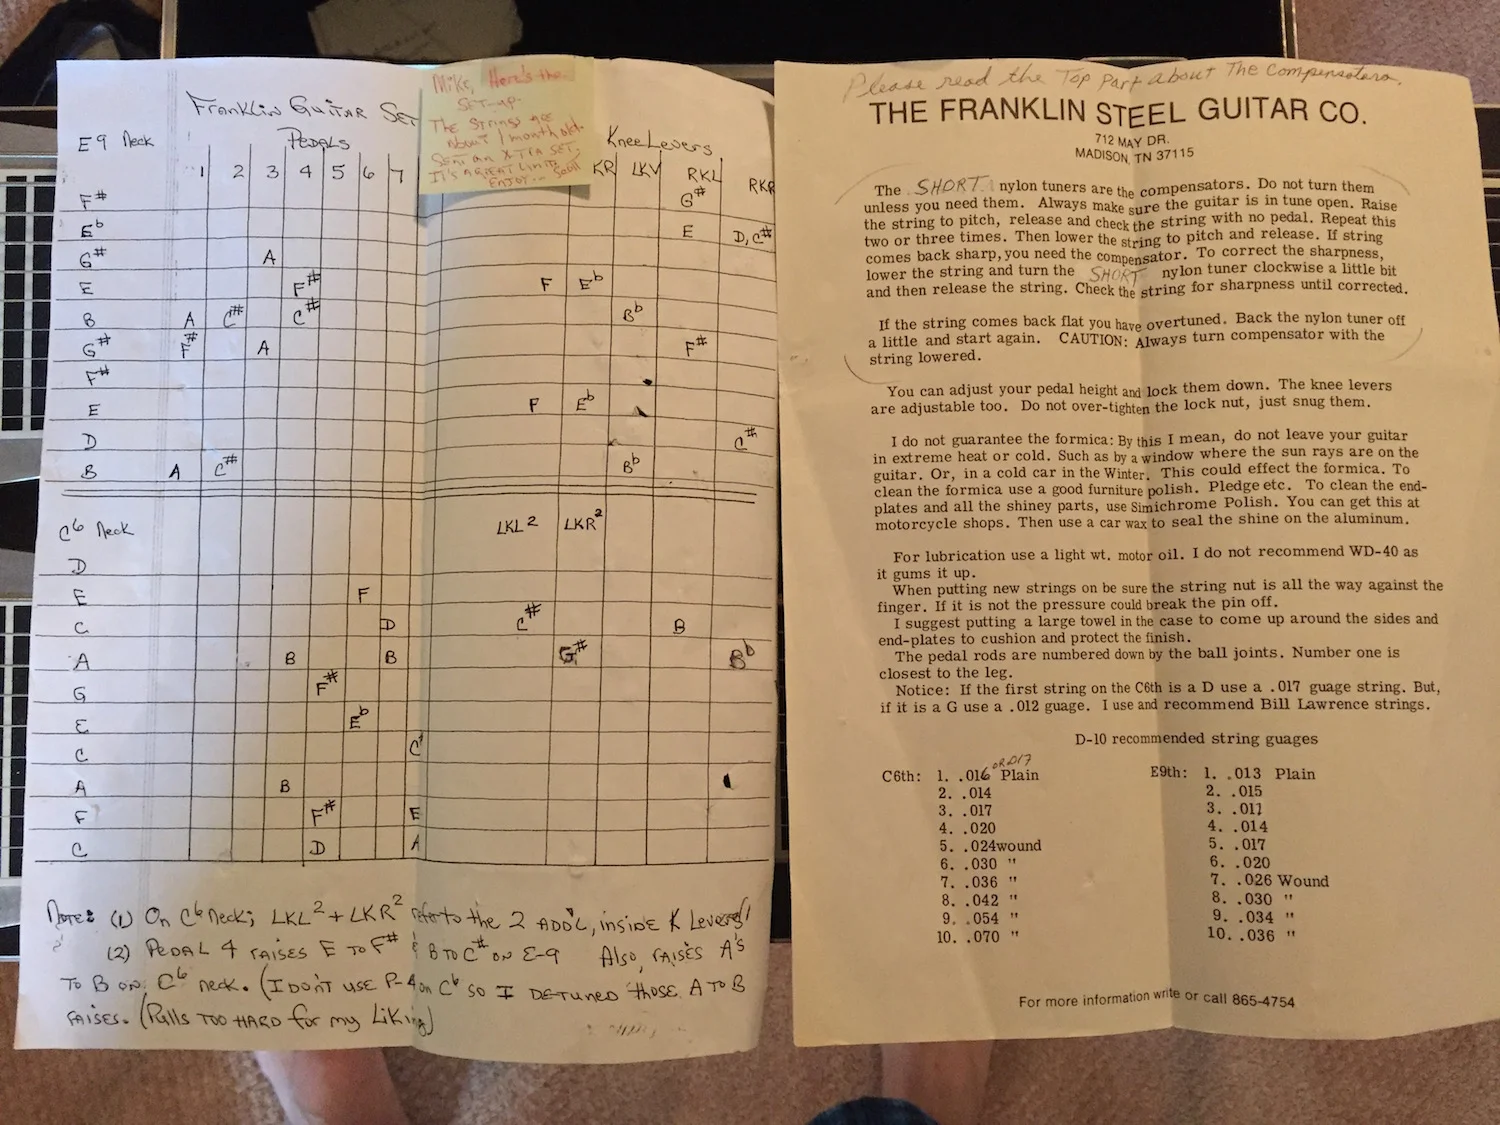 Franklin Guitar Set
E9 Neck
Pedals
Knee Levers
1 2 3 4 5 6 7 KR LKV RKL RKR
F# G#
Eb E D, C#
G# A
E F# F Eb
B A C# C# Bb
G# F# A F#
F#
E F Eb
D C#
B A C# Bb
C6 Neck LKL2 LKR2
D
E F
C D C# B
A B B G# Bb
G F#
E Eb
C C#
A B
F F# E
C D A
Note: (1) On C6 Neck; LKL2 + LKR2 refer to the 2 ADD'L, inside K Levers!
(2) Pedal 4 raises E to F# & B to C# on E-9 Also, raises A's
to B on C6 neck. (I don't use P-4 on C6 so I detuned those A to B
raises. (Pulls too hard for my liking)
Mike, Here's the
set-up.
The strings are
about 1 month old.
Sent an x-tra set.
It's a great little
Enjoy...
Please read the Top Part about The Compensators.
THE FRANKLIN STEEL GUITAR CO.
712 MAY DR.
MADISON, TN 37115
The SHORT nylon tuners are the compensators. Do not turn them
unless you need them. Always make sure the guitar is in tune open. Raise
the string to pitch, release and check the string with no pedal. Repeat this
two or three times. Then lower the string to pitch and release. If string
comes back sharp, you need the compensator. To correct the sharpness,
lower the string and turn the SHORT nylon tuner clockwise a little bit
and then release the string. Check the string for sharpness until corrected.
If the string comes back flat you have overtuned. Back the nylon tuner off
a little and start again. CAUTION: Always turn compensator with the
string lowered.
You can adjust your pedal height and lock them down. The knee levers
are adjustable too. Do not over-tighten the lock nut, just snug them.
I do not guarantee the formica: By this I mean, do not leave your guitar
in extreme heat or cold. Such as by a window where the sun rays are on the
guitar. Or, in a cold car in the Winter. This could effect the formica. To
clean the formica use a good furniture polish. Pledge etc. To clean the end-
plates and all the shiney parts, use Simichrome Polish. You can get this at
motorcycle shops. Then use a car wax to seal the shine on the aluminum.
For lubrication use a light wt. motor oil. I do not recommend WD-40 as
it gums it up.
When putting new strings on be sure the string nut is all the way against the
finger. If it is not the pressure could break the pin off.
I suggest putting a large towel in the case to come up around the sides and
end-plates to cushion and protect the finish.
The pedal rods are numbered down by the ball joints. Number one is
closest to the leg.
Notice: If the first string on the C6th is a D use a .017 guage string. But,
if it is a G use a .012 guage. I use and recommend Bill Lawrence strings.
D-10 recommended string guages
or .017
C6th: 1. .016 Plain
2. .014
3. .017
4. .020
5. .024wound
6. .030 "
7. .036 "
8. .042 "
9. .054 "
10. .070 "
E9th: 1. .013 Plain
2. .015
3. .011
4. .014
5. .017
6. .020
7. .026 Wound
8. .030 "
9. .034 "
10. .036 "
For more information write or call 865-4754